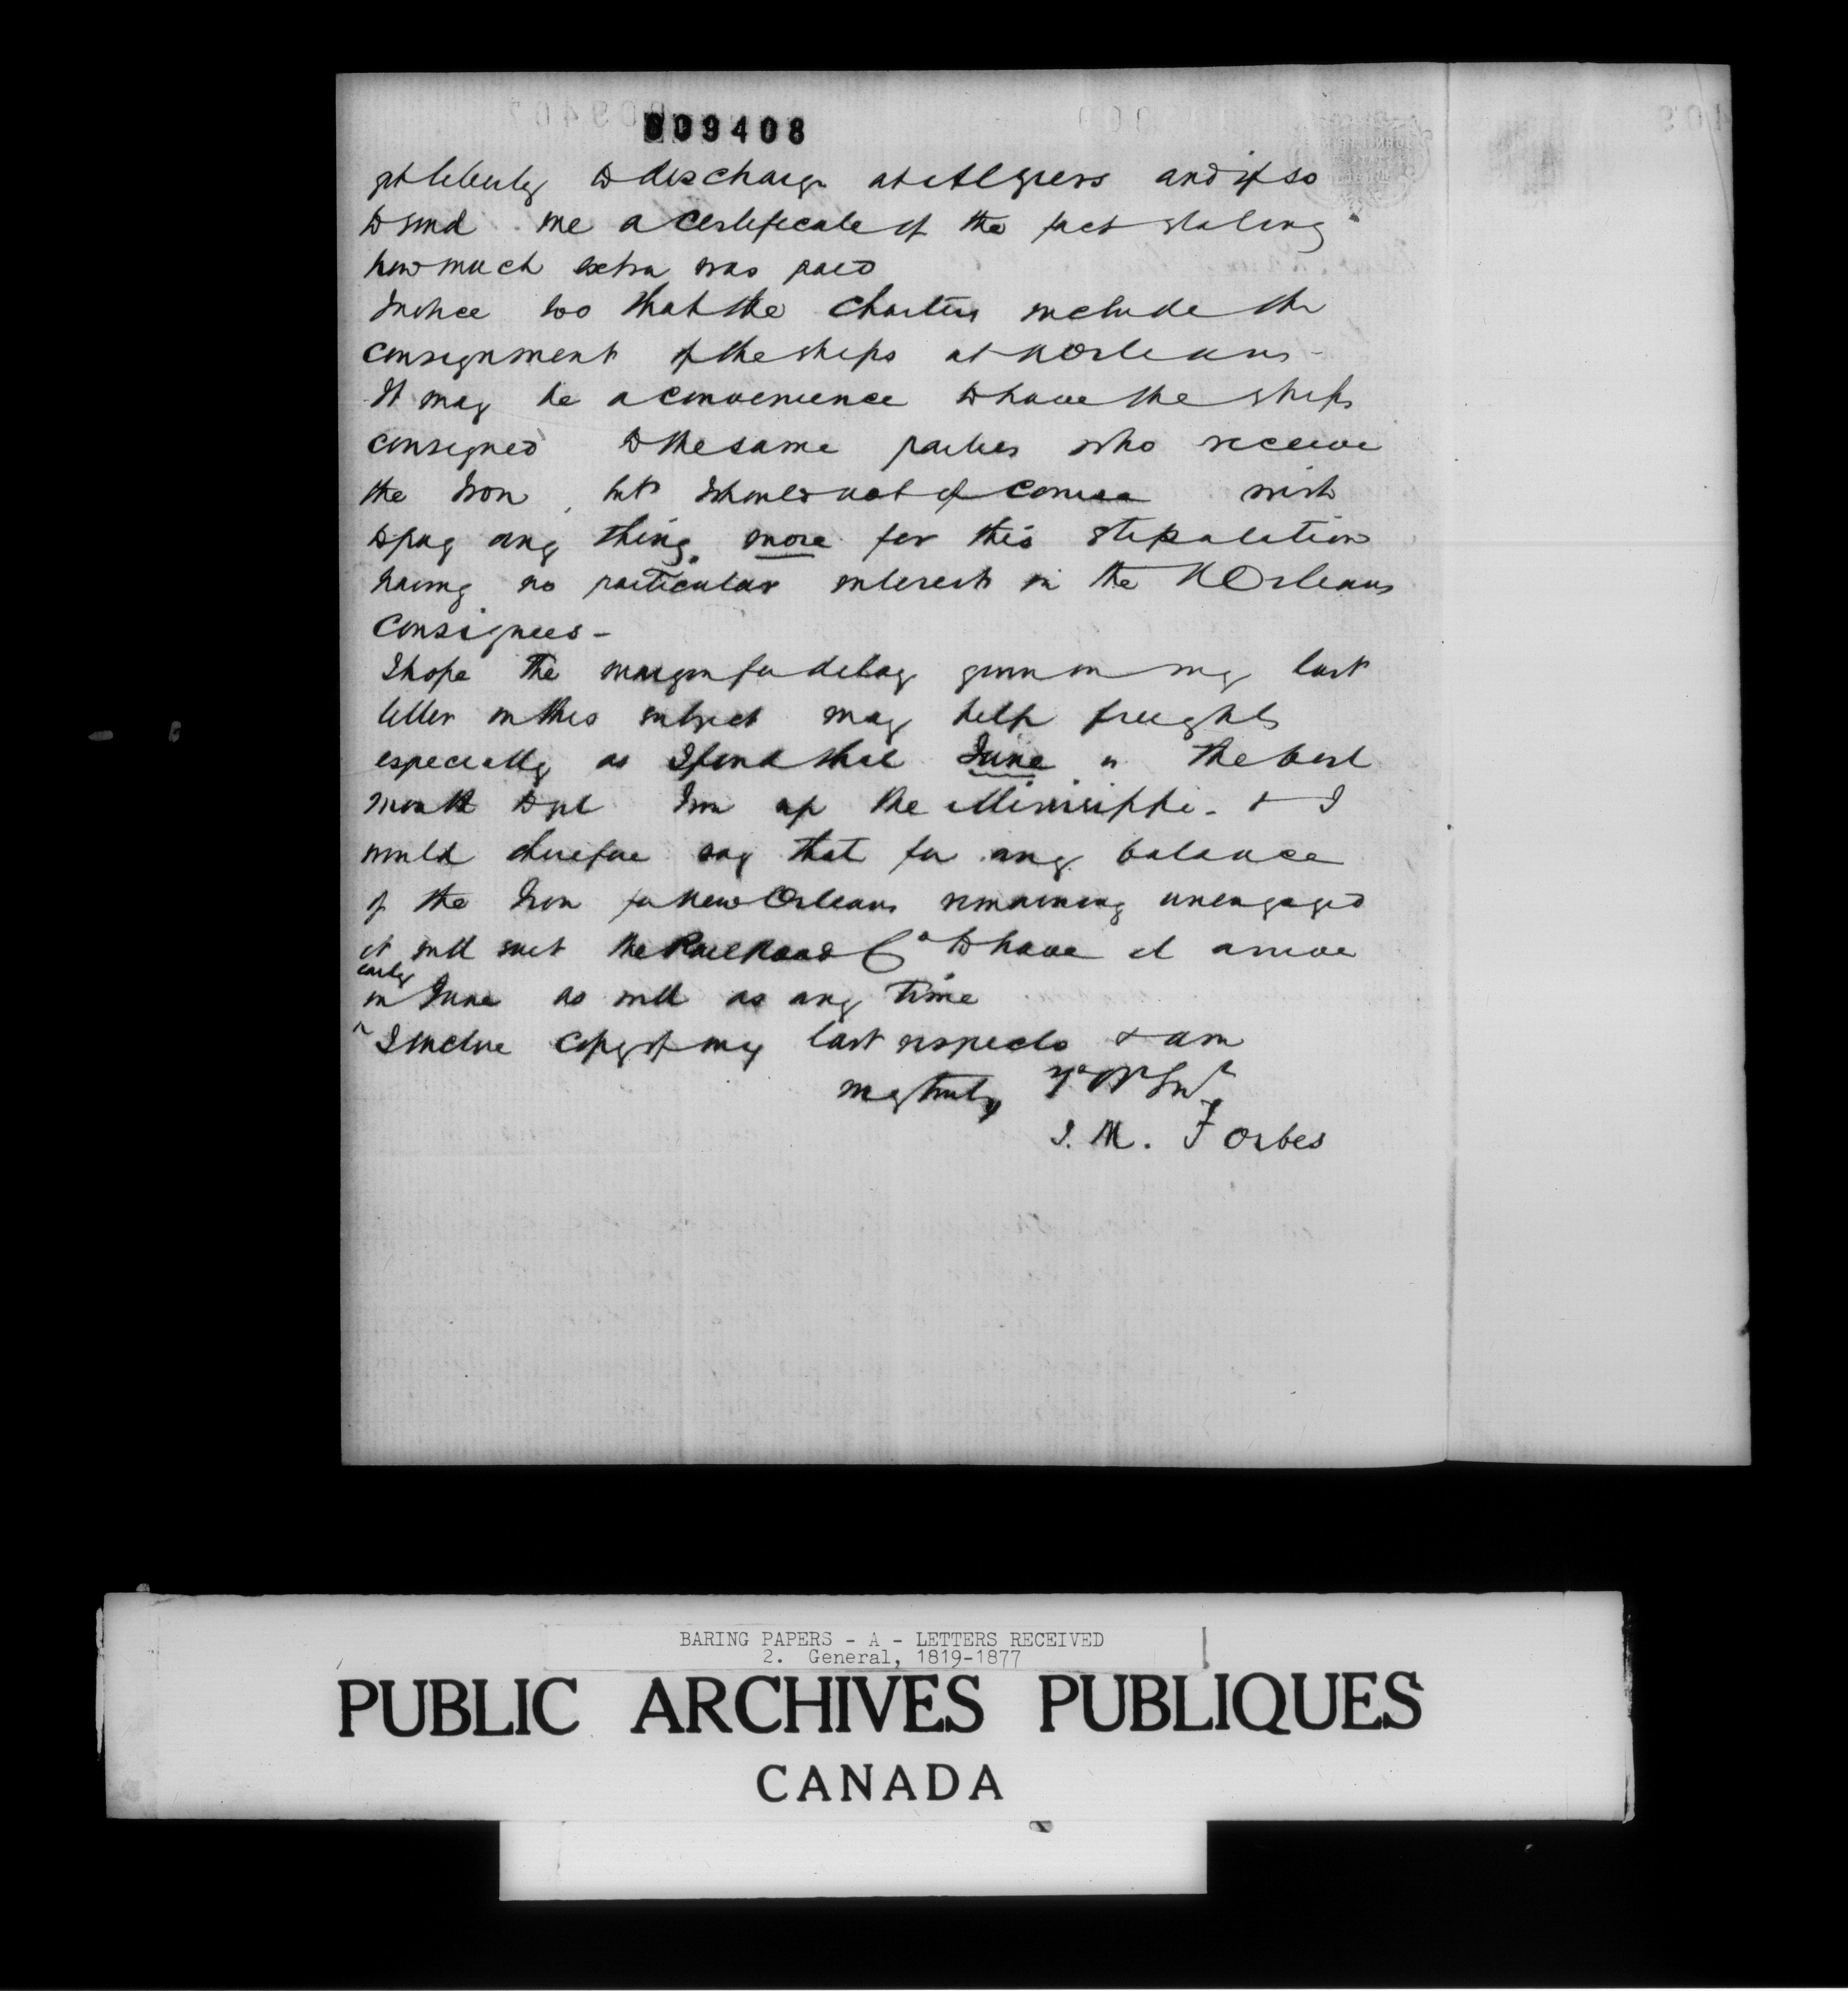 009408
liberty to discharge at Algiers and if so
to send me a certificate of the fact stating
how much extra was paid
I notice too that the Charters include the
consignment of the ships at N Orleans -
It may be a convenience to have the ships
consigned to the same parties who receive
the Iron, but I should not of course wish
to pay any thing more for this stipulation
having no particular interest in the N Orleans
Consignees -
I hope the margin for delay given in my last
letter on this subject may help freights
especially as I find that June is the best
month to get Iron up the Mississippi - & I
would therefore say that for any balance
of the Iron for New Orleans remaining unengaged
it will suit the Rail Road Co to have it arrive
early
in June as well as any time
I enclose copy of my last respects & am
truly Yr
J. M. Forbes
BARING PAPERS - A - LETTERS RECEIVED
2. General, 1819-1877
PUBLIC ARCHIVES PUBLIQUES
CANADA